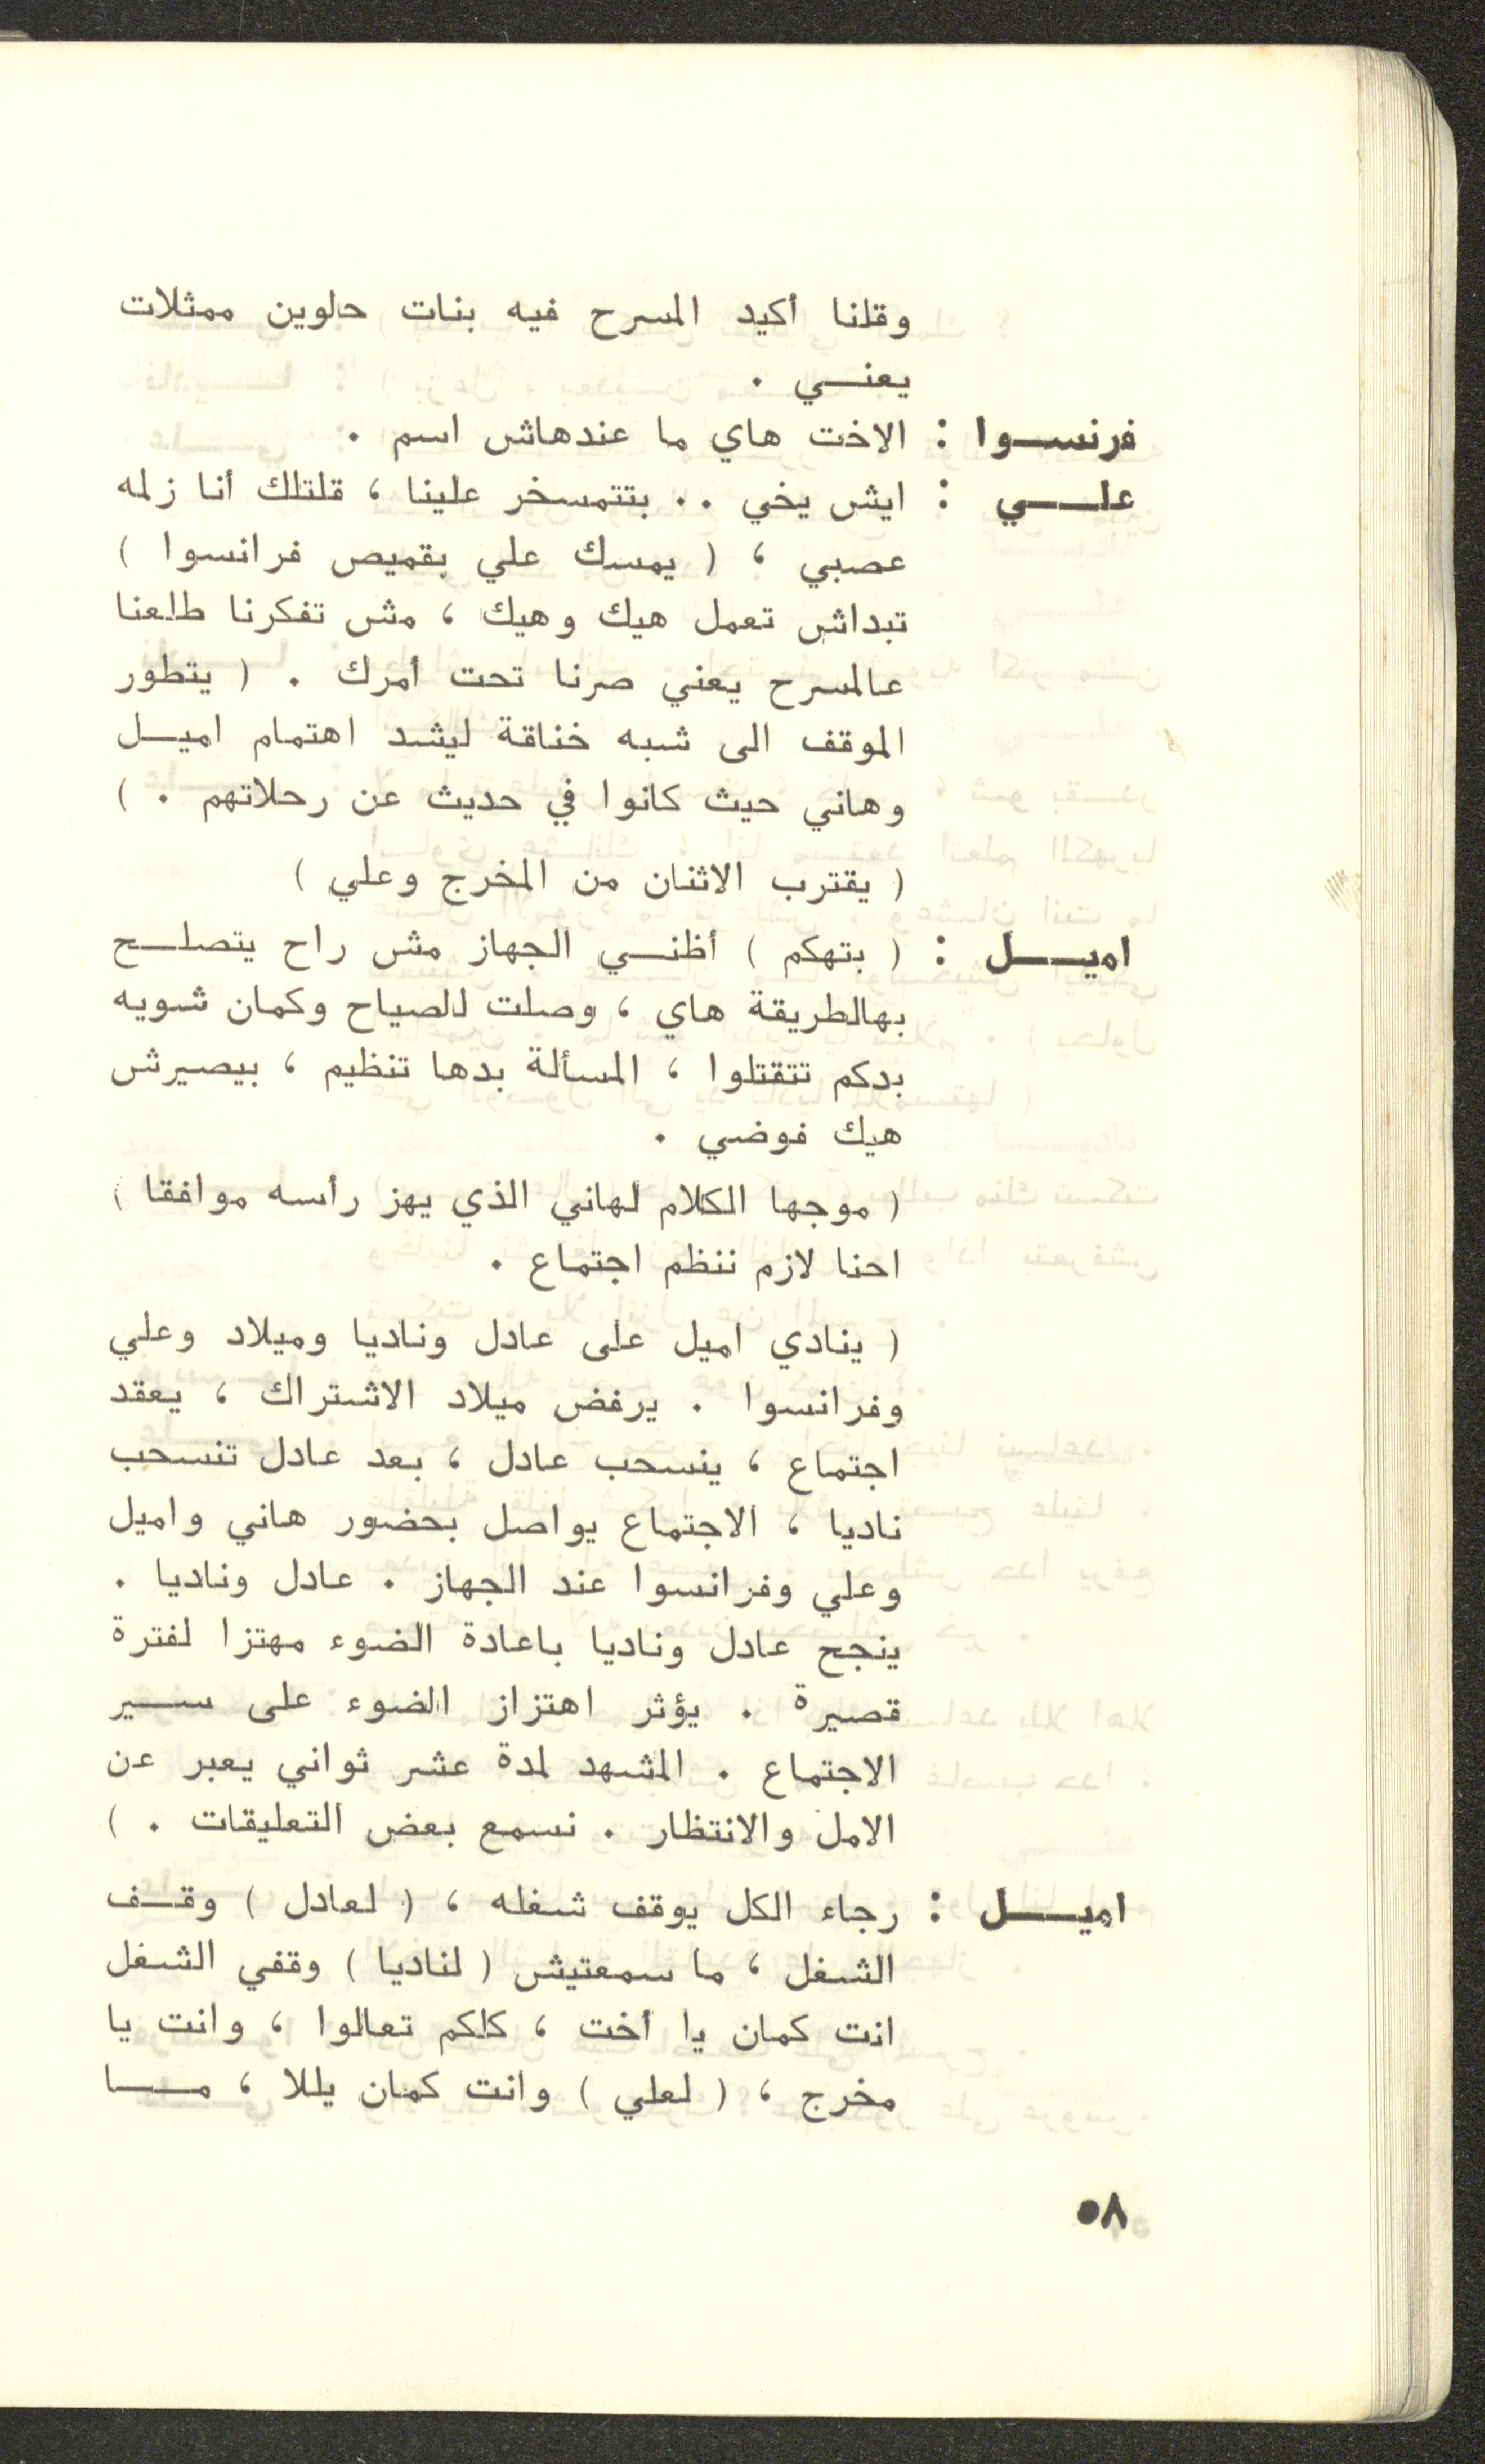 وقلنا أكيد المسرح فيه بنات حلوين ممثلات
يعني .
فرنسوا : الاخت هاي ما عندهاش اسم .
علي : ايش يخي .. بتتمسخر علينا ، قلتلك أنا زلمه
عصبي ، ( يمسك علي بقميص فرانسوا )
تبداش تعمل هيك وهيك ، مش تفكرنا طلعنا
عالمسرح يعني صرنا تحت أمرك . ( يتطور
الموقف الى شبه خناقة ليشد اهتمام اميل
وهاني حيث كانوا في حديث عن رحلاتهم . )
( يقترب الاثنان من المخرج وعلي )
اميل : ( بتهكم ) أظني الجهاز مش راح يتصلح
بهالطريقة هاي ، وصلت للصياح وكمان شويه
بدكم تتقتلوا ، المسألة بدها تنظيم ، بيصيرش
هيك فوضي .
( موجها الكلام لهاني الذي يهز رأسه موافقا )
احنا لازم ننظم اجتماع .
( ينادي اميل على عادل وناديا وميلاد وعلي
وفرانسوا . يرفض ميلاد الاشتراك ، يعقد
اجتماع ، ينسحب عادل ، بعد عادل تنسحب
ناديا ، الاجتماع يواصل بحضور هاني واميل
وعلي وفرانسوا عند الجهاز . عادل وناديا .
ينجح عادل وناديا باعادة الضوء مهتزا لفترة
قصيرة . يؤثر اهتزاز الضوء على سير
الاجتماع . المشهد لمدة عشر ثواني يعبر عن
الامل والانتظار . نسمع بعض التعليقات . )
اميل : رجاء الكل يوقف شغله ، ( لعادل ) وقف
الشغل ، ما سمعتيش ( لناديا ) وقفي الشغل
انت كمان يا أخت ، كلكم تعالوا ، وانت يا
مخرج ، ( لعلي ) وانت كمان يللا ، ما
٥٨